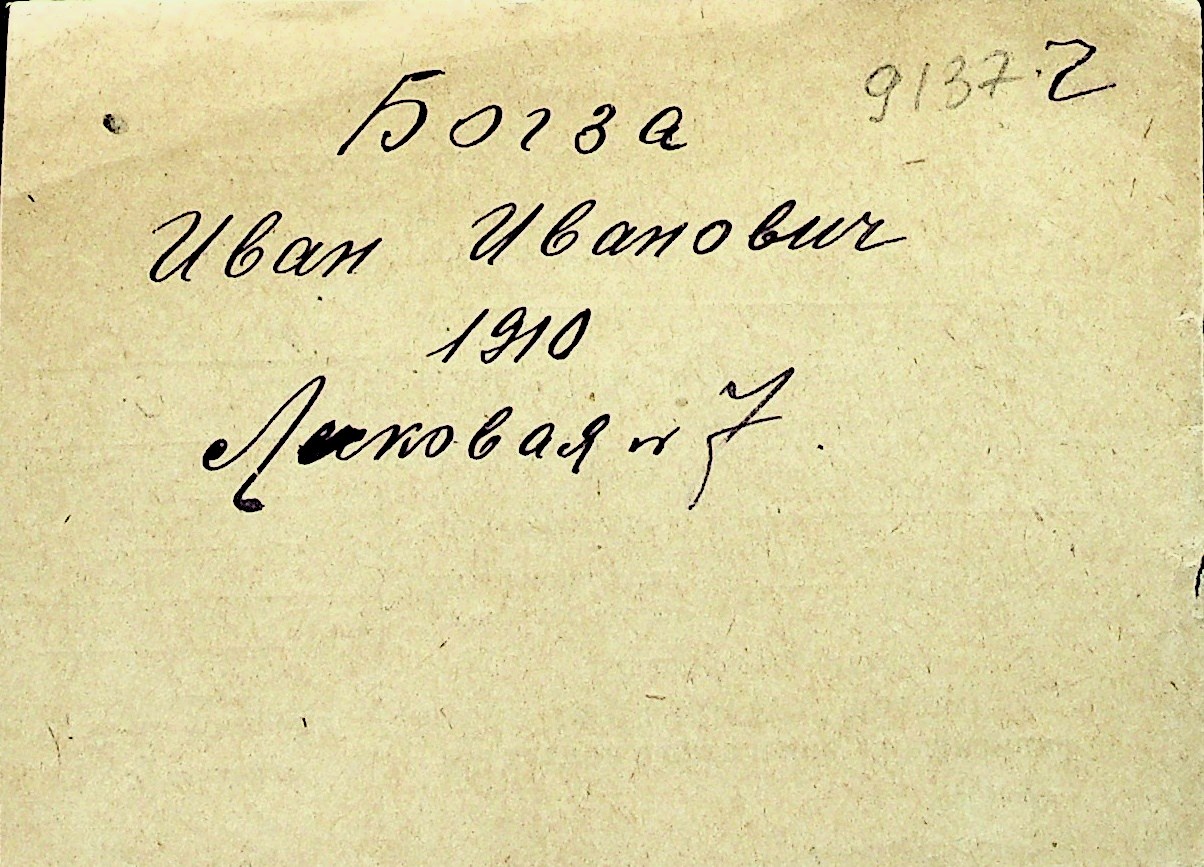 9137 2
Богза
Иван Иванович
1910
№ 7